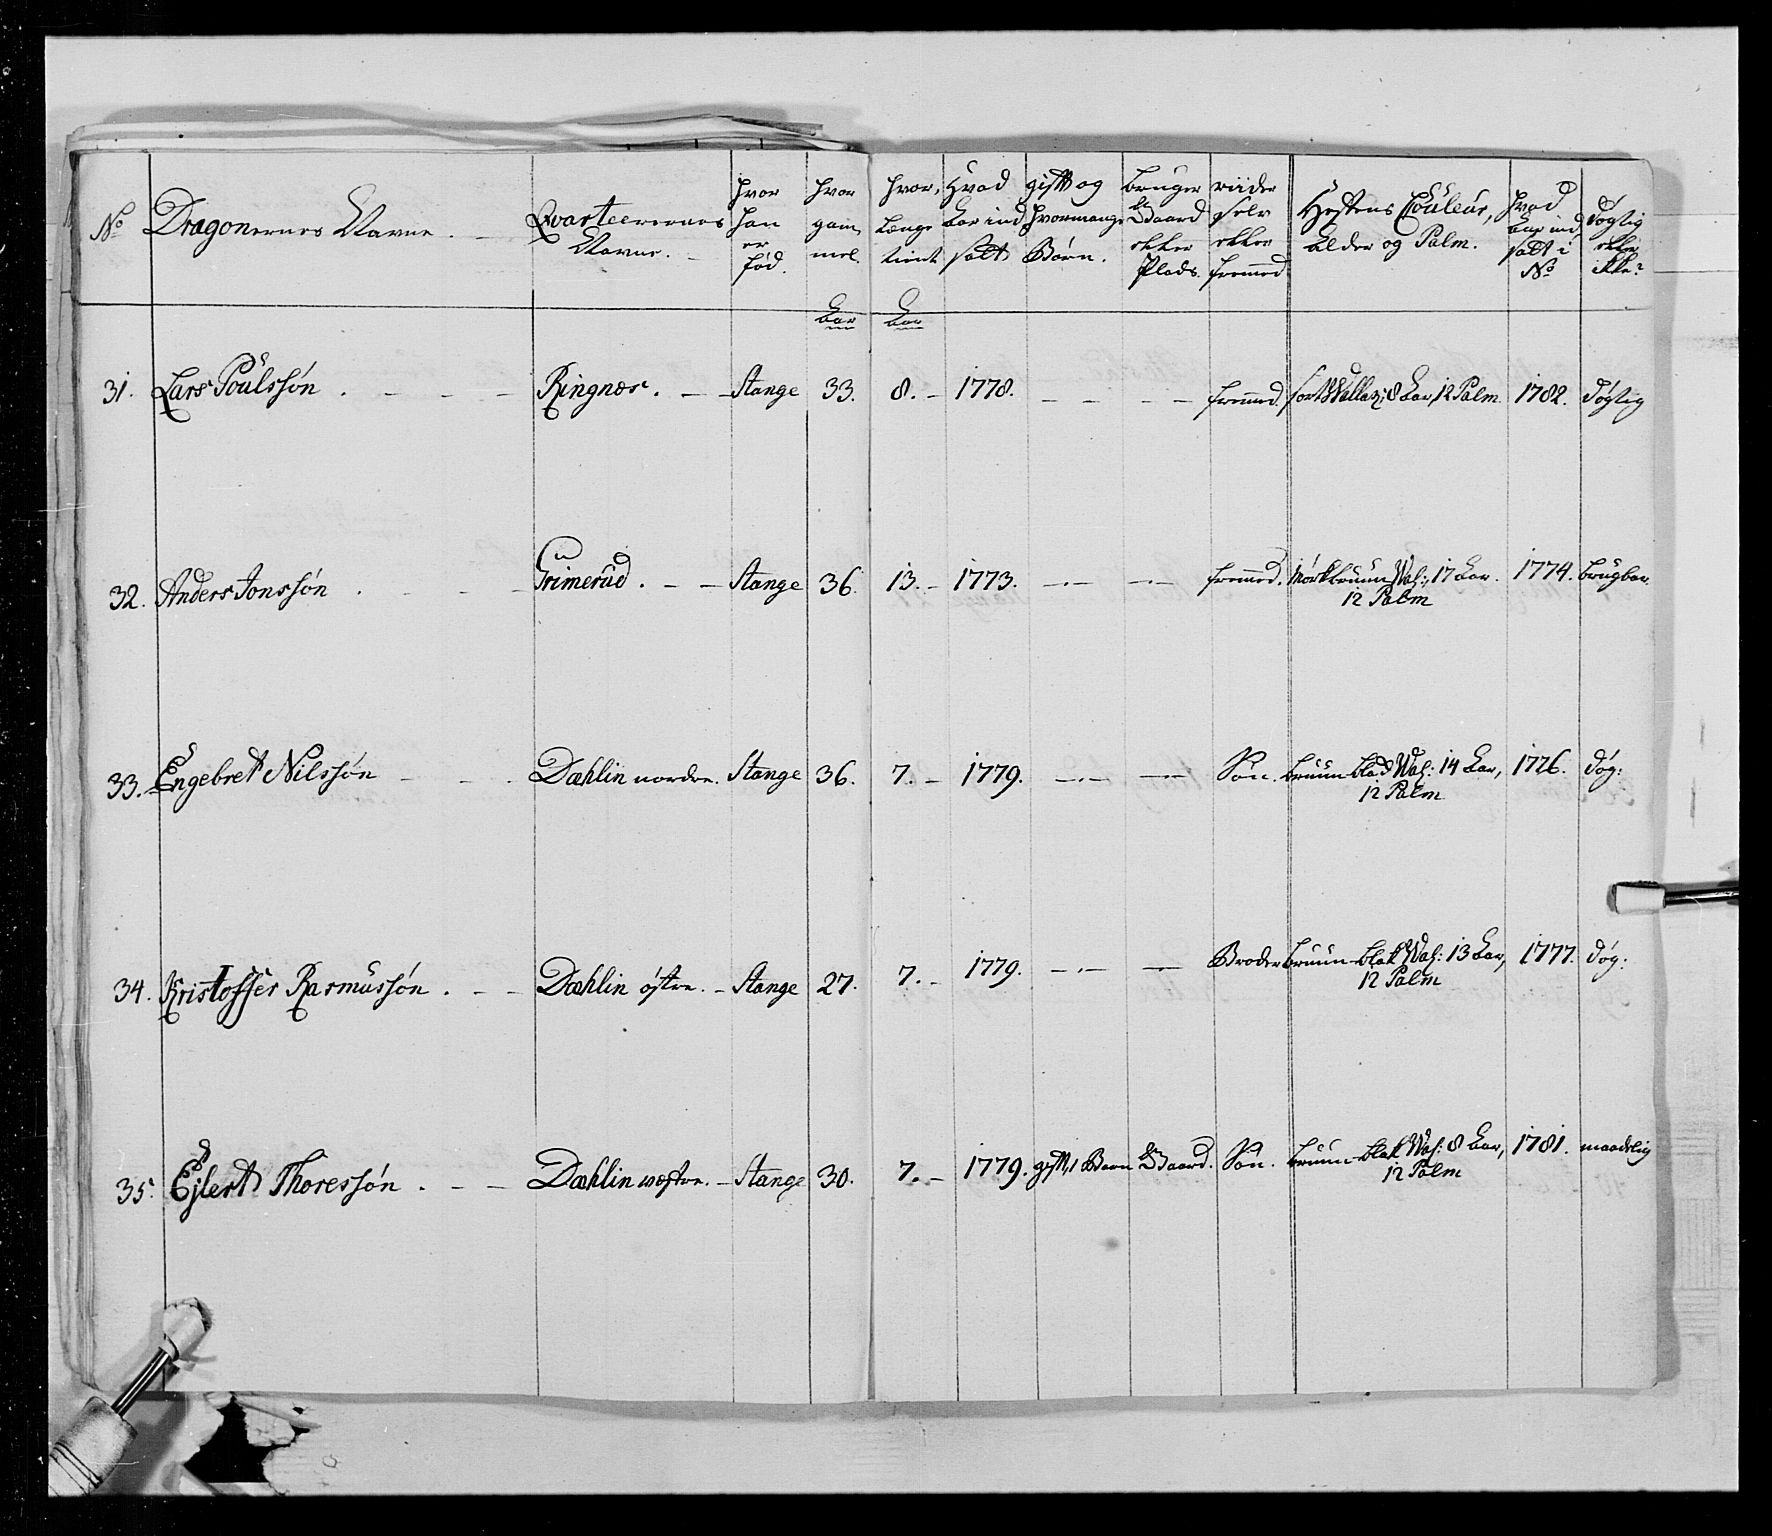 No
Dragonernes Navne.
Qvarteerernes Navne.
hvor han er fød.
hvor gammel.
hvor længe tient
Hvad Aar ind satt
gift og hvormange Børn.
bruger Gaard eller Plads.
riider selv eller fremmed
Hestens Couleur, Alder og Palm.
hvad Aar ind satt i No
døgtig eller ikke?
Aar Aar
31. Lars Poulssøn . - - - Ringnæs. - - Stange 33. 8. - 1778. - - - - fremmed. sort Wallak, 8 Aar, 12 Palm. 1782. døgtig
32. Anders Jonssøn . - - - Grimerud. - - Stange 36. 13. - 1773. - - - - fremmed. Mørkbruun Wal:, 17 Aar. 1774. brugbar.
12 Palm
33. Engebret Nilssøn - - - Dæhlin nordre. Stange 36. 7. - 1779. - - - - Søn. bruun blak Wal: 14 Aar, 1776. døg:
12 Palm
34. Kristoffer Rasmussøn . - - Dæhlin østre. - Stange 27. 7. - 1779. - - - - Broder bruun-blak Wal: 13 Aar, 1777. døg:
12 Palm
35. Ejlert Thoressøn . - - Dæhlin westre. - Stange 30. 7. - 1779. gift, 1 Barn Gaard. Søn. bruun-blak Wal: 8 Aar, 1781. maadelig
12 Palm